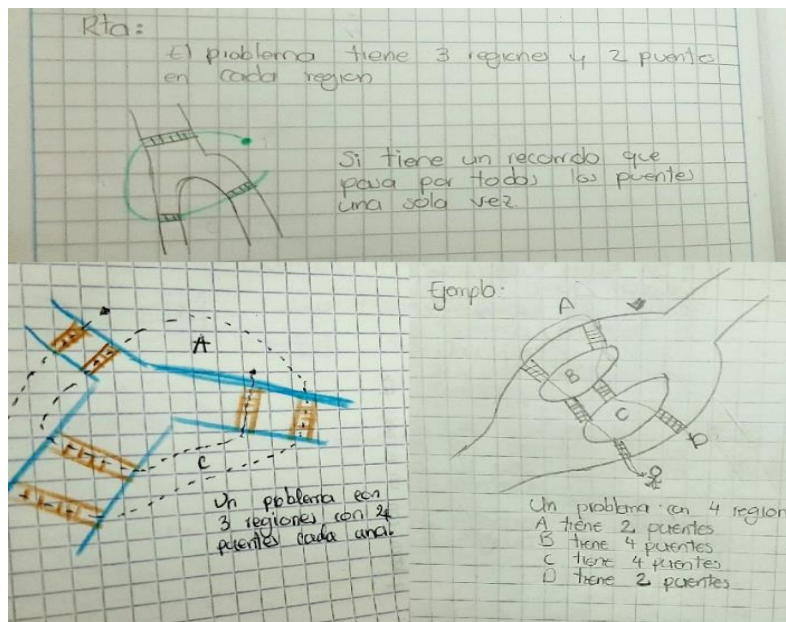 Rta:
El problema tiene 3 regiones y 2 puentes
en cada region
Si tiene un recorrido que
pasa por todos los puentes
una sola vez
A
C
Un poblema con
3 regiones con 4
puentes cada una.
Ejemplo:
A
B
C
D
Un problema con 4 region
A tiene 2 puentes
B tiene 4 puentes
C tiene 4 puentes
D tiene 2 puentes